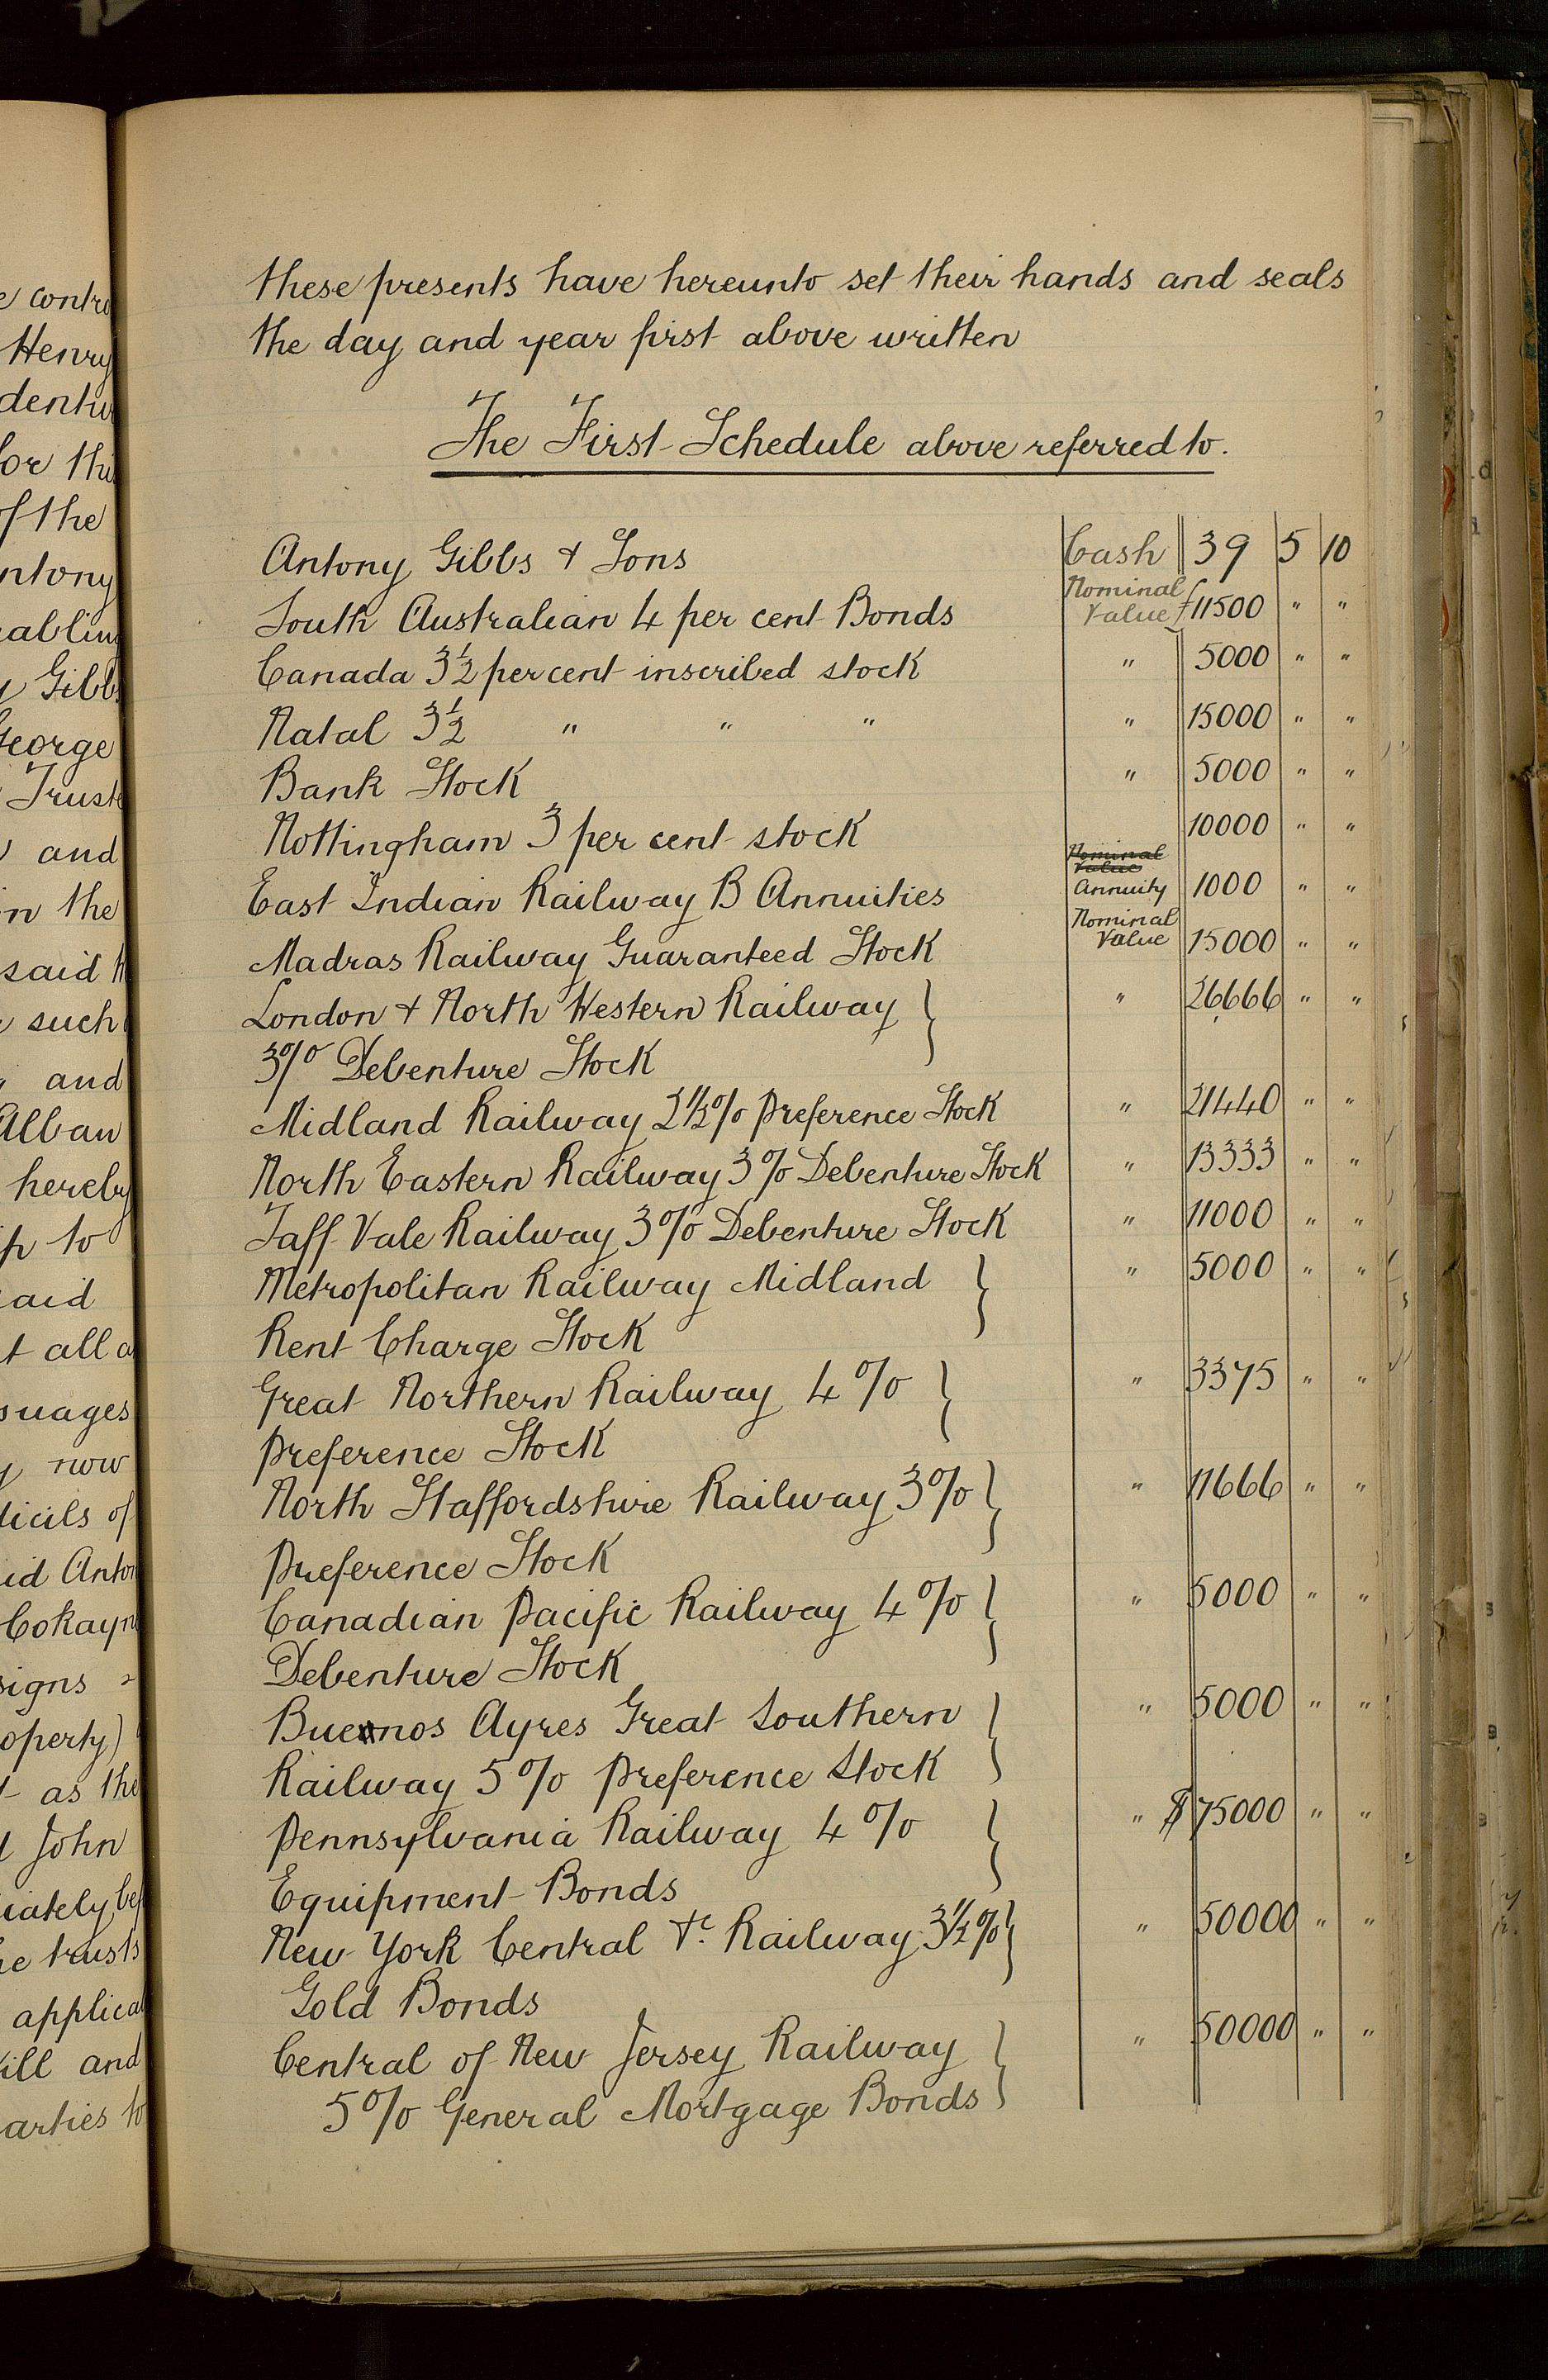 these presents have hereunto set their hands and seals
the day and year first above written
The First Schedule above referred to.
Antony Gibbs & Sons Cash 39 5 10
South Australian 4 per cent Bonds Nominal Value £11500 " "
Canada 3½ per cent inscribed stock " 5000 " "
Natal 3½ " " " " 15000 " "
Bank Stock " 5000 " "
Nottingham 3 per cent stock 10000 " "
East Indian Railway B Annuities Nominal Value Annuity 1000 " "
Madras Railway Guaranteed Stock Nominal Value 15000 " "
London & North Western Railway } " 26666 " "
3% Debenture Stock
Midland Railway 2½% Preference Stock " 21440 " "
North Eastern Railway 3% Debenture Stock " 13333 " "
Taff Vale Railway 3% Debenture Stock " 11000 " "
Metropolitan Railway Midland } " 5000 " "
Rent Charge Stock
Great Northern Railway 4% } " 3375 " "
Preference Stock
North Staffordshire Railway 3% } " 11666 " "
Preference Stock
Canadian Pacific Railway 4% } " 5000 " "
Debenture Stock
Buenos Ayres Great Southern } " 5000 " "
Railway 5% Preference Stock
Pennsylvania Railway 4% } " $75000 " "
Equipment Bonds
New York Central &c. Railway 3½% } " 50000 " "
Gold Bonds
Central of New Jersey Railway } " 50000 " "
5% General Mortgage Bonds
Henry
of the
Gibbs
George
and
in the
said
such
and
Alban
hereby
to
all
now
of
Cokayn
operty)
as the
John
trusts
and